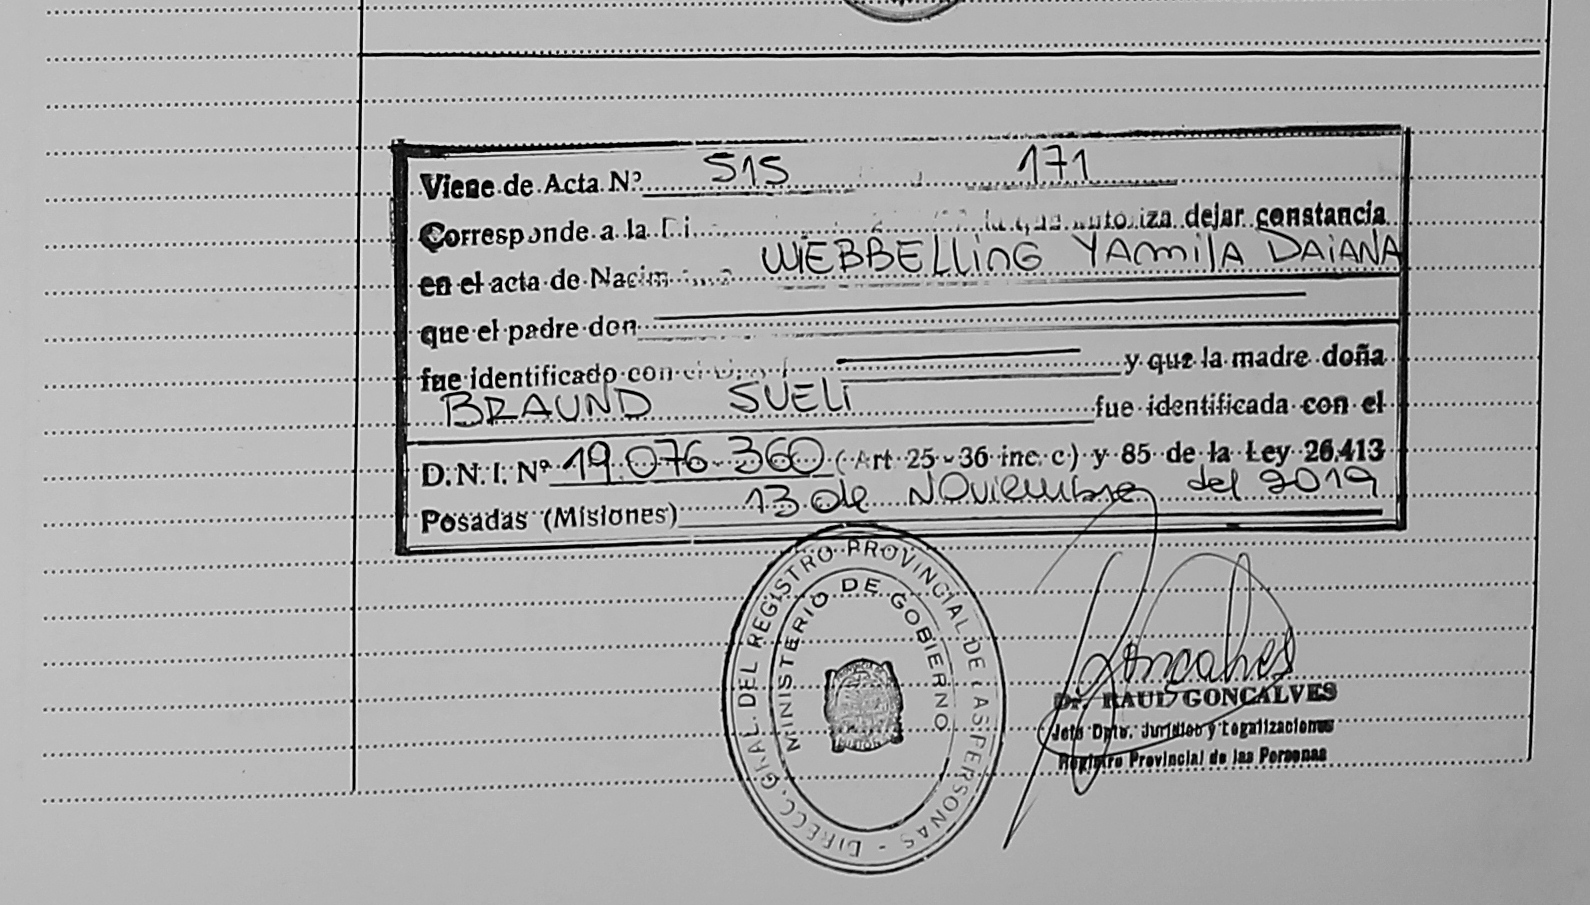 Viene de Acta Nº 515 171
Corresponde a la Di autoriza dejar constancia
en el acta de Nacim WEBBELLinG YAmilA DAiANA
que el padre don
fue identificado con el y que la madre doña
BRAUND SUELi fue identificada con el
D.N.I. Nº 19.076.360 (Art 25-36 inc. c) y 85 de la Ley 26.413
Posadas (Misiones) 13 de Noviembre del 2019
DIRECC. GRAL. DEL REGISTRO PROVINCIAL DE LAS PERSONAS -
MINISTERIO DE GOBIERNO
Goncalves
Dr. RAUL GONCALVES
Jefe Dpto. Jurídico y Legalizaciones
Registro Provincial de las Personas